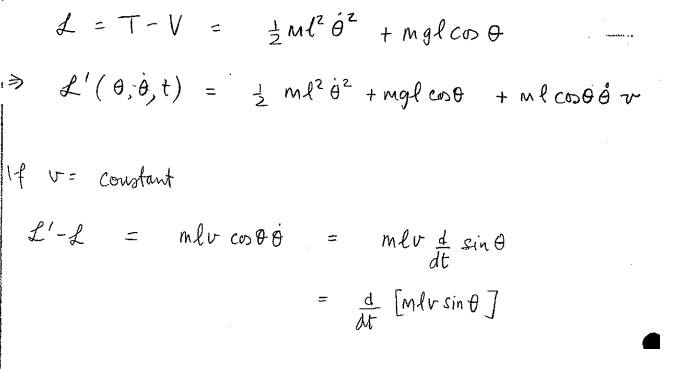 ℒ = T - V = ½ ml² θ̇² + mgl cos θ
⇒ ℒ'(θ, θ̇, t) = ½ ml² θ̇² + mgl cosθ + ml cosθ θ̇ v
If v = constant
ℒ' - ℒ = mlv cosθ θ̇ = mlv d/dt sin θ
= d/dt [mlv sin θ]